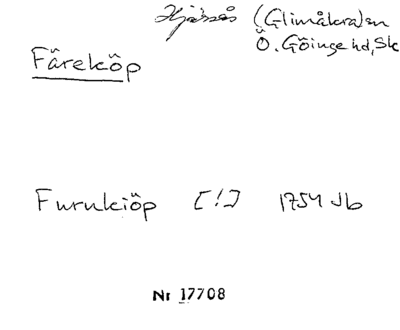 Hjärsås (Glimåkra)sn
Ö. Göinge hd, Sk
Färeköp
Furukiöp [!] 1754 Jb
Nr 17708